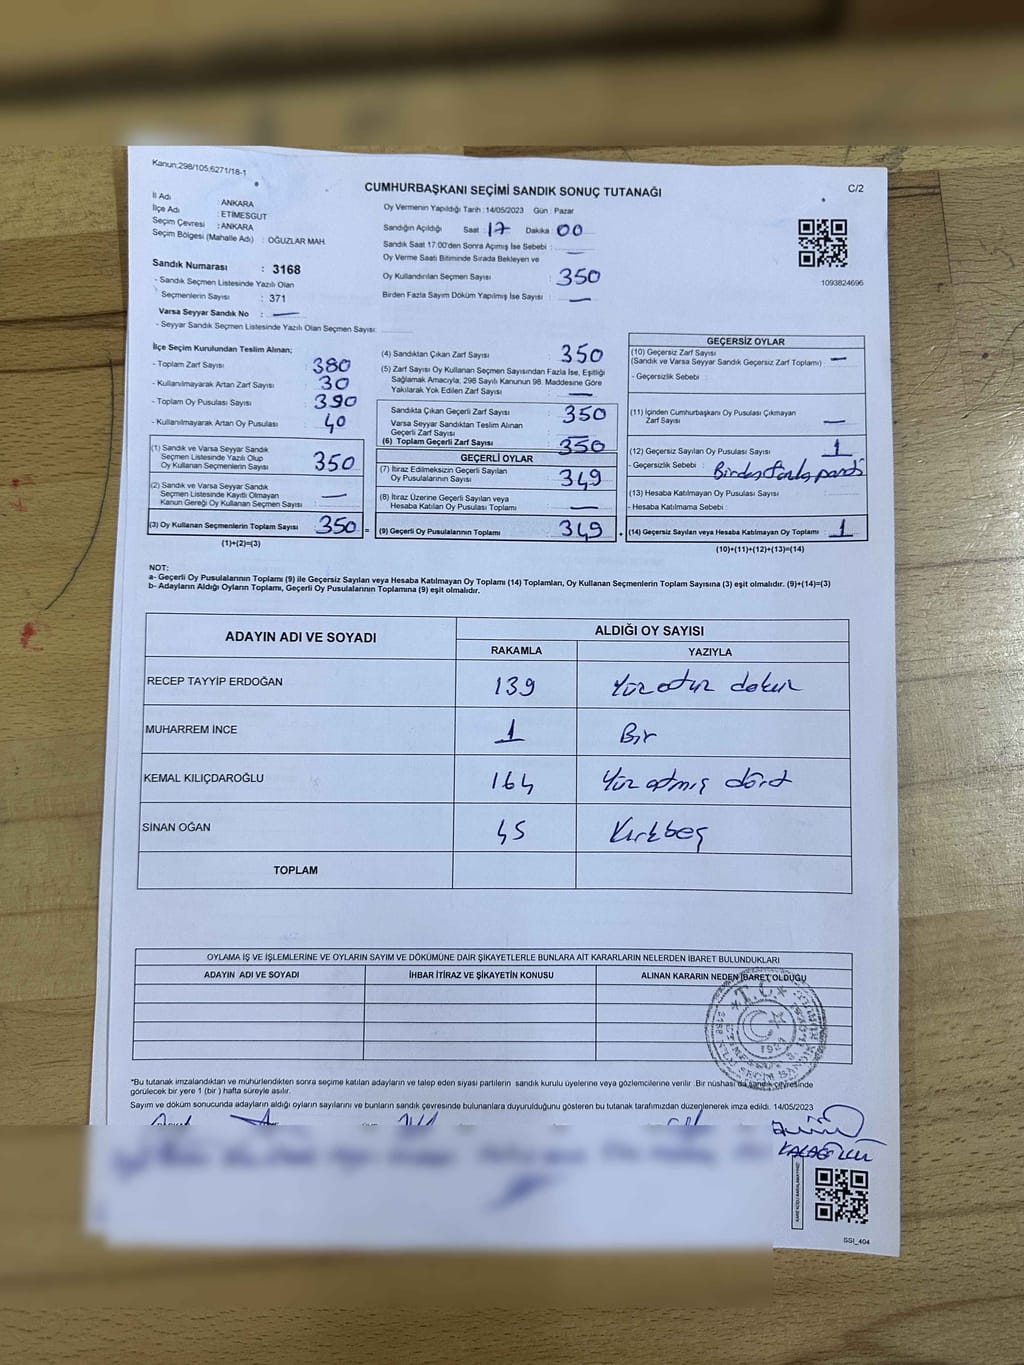 Kanun;298/105;6271/18-1
CUMHURBAŞKANI SEÇİMİ SANDIK SONUÇ TUTANAĞI
C/2
İl Adı : ANKARA
İlçe Adı : ETİMESGUT
Seçim Çevresi : ANKARA
Seçim Bölgesi (Mahalle Adı) : OĞUZLAR MAH.
Sandık Numarası : 3168
- Sandık Seçmen Listesinde Yazılı Olan
Seçmenlerin Sayısı : 371
Varsa Seyyar Sandık No : —
- Seyyar Sandık Seçmen Listesinde Yazılı Olan Seçmen Sayısı:
Oy Vermenin Yapıldığı Tarih :14/05/2023 Gün : Pazar
Sandığın Açıldığı Saat : 17 Dakika : 00
Sandık Saat 17.00'den Sonra Açımış İse Sebebi :
Oy Verme Saati Bitiminde Sırada Bekleyen ve —
Oy Kullandırılan Seçmen Sayısı : 350
Birden Fazla Sayım Döküm Yapılmış İse Sayısı : —
1093824696
İlçe Seçim Kurulundan Teslim Alınan;
- Toplam Zarf Sayısı : 380
- Kullanılmayarak Artan Zarf Sayısı : 30
- Toplam Oy Pusulası Sayısı : 390
- Kullanılmayarak Artan Oy Pusulası : 40
(1) Sandık ve Varsa Seyyar Sandık
Seçmen Listesinde Yazılı Olup
Oy Kullanan Seçmenlerin Sayısı : 350
(2) Sandık ve Varsa Seyyar Sandık
Seçmen Listesinde Kayıtlı Olmayan
Kanun Gereği Oy Kullanan Seçmen Sayısı : —
(3) Oy Kullanan Seçmenlerin Toplam Sayısı : 350 =
(1)+(2)=(3)
(4) Sandıktan Çıkan Zarf Sayısı : 350
(5) Zarf Sayısı Oy Kullanan Seçmen Sayısından Fazla İse, Eşitliği
Sağlamak Amacıyla; 298 Sayılı Kanunun 98. Maddesine Göre
Yakılarak Yok Edilen Zarf Sayısı : —
Sandıkta Çıkan Geçerli Zarf Sayısı : 350
Varsa Seyyar Sandıktan Teslim Alınan
Geçerli Zarf Sayısı : —
(6) Toplam Geçerli Zarf Sayısı : 350
GEÇERLİ OYLAR
(7) İtiraz Edilmeksizin Geçerli Sayılan
Oy Pusulalarının Sayısı : 349
(8) İtiraz Üzerine Geçerli Sayılan veya
Hesaba Katılan Oy Pusulası Toplamı : —
(9) Geçerli Oy Pusulalarının Toplamı : 349 +
GEÇERSİZ OYLAR
(10) Geçersiz Zarf Sayısı
(Sandık ve Varsa Seyyar Sandık Geçersiz Zarf Toplamı) : —
- Geçersizlik Sebebi :
(11) İçinden Cumhurbaşkanı Oy Pusulası Çıkmayan
Zarf Sayısı : —
(12) Geçersiz Sayılan Oy Pusulası Sayısı : 1
- Geçersizlik Sebebi :
(13) Hesaba Katılmayan Oy Pusulası Sayısı :
- Hesaba Katılmama Sebebi :
(14) Geçersiz Sayılan veya Hesaba Katılmayan Oy Toplamı : 1
(10)+(11)+(12)+(13)=(14)
NOT:
a- Geçerli Oy Pusulalarının Toplamı (9) ile Geçersiz Sayılan veya Hesaba Katılmayan Oy Toplamı (14) Toplamları, Oy Kullanan Seçmenlerin Toplam Sayısına (3) eşit olmalıdır. (9)+(14)=(3)
b- Adayların Aldığı Oyların Toplamı, Geçerli Oy Pusulalarının Toplamına (9) eşit olmalıdır.
ADAYIN ADI VE SOYADI
ALDIĞI OY SAYISI
RAKAMLA YAZIYLA
RECEP TAYYİP ERDOĞAN 139 Yüz otuz dokuz
MUHARREM İNCE 1 Bir
KEMAL KILIÇDAROĞLU 164 Yüz atmış dört
SİNAN OĞAN 45 Kırkbeş
TOPLAM
OYLAMA İŞ VE İŞLEMLERİNE VE OYLARIN SAYIM VE DÖKÜMÜNE DAİR ŞİKAYETLERLE BUNLARA AİT KARARLARIN NELERDEN İBARET BULUNDUKLARI
ADAYIN ADI VE SOYADI İHBAR İTİRAZ VE ŞİKAYETİN KONUSU ALINAN KARARIN NEDEN İBARET OLDUĞU
T.C.
*Bu tutanak imzalandıktan ve mühürlendikten sonra seçime katılan adayların ve talep eden siyasi partilerin sandık kurulu üyelerine veya gözlemcilerine verilir .Bir nüshası da sandık çevresinde
görülecek bir yere 1 (bir ) hafta süreyle asılır.
Sayım ve döküm sonucunda adayların aldığı oyların sayılarını ve bunların sandık çevresinde bulunanlara duyurulduğunu gösteren bu tutanak tarafımızdan düzenlenerek imza edildi. 14/05/2023
SSI_404